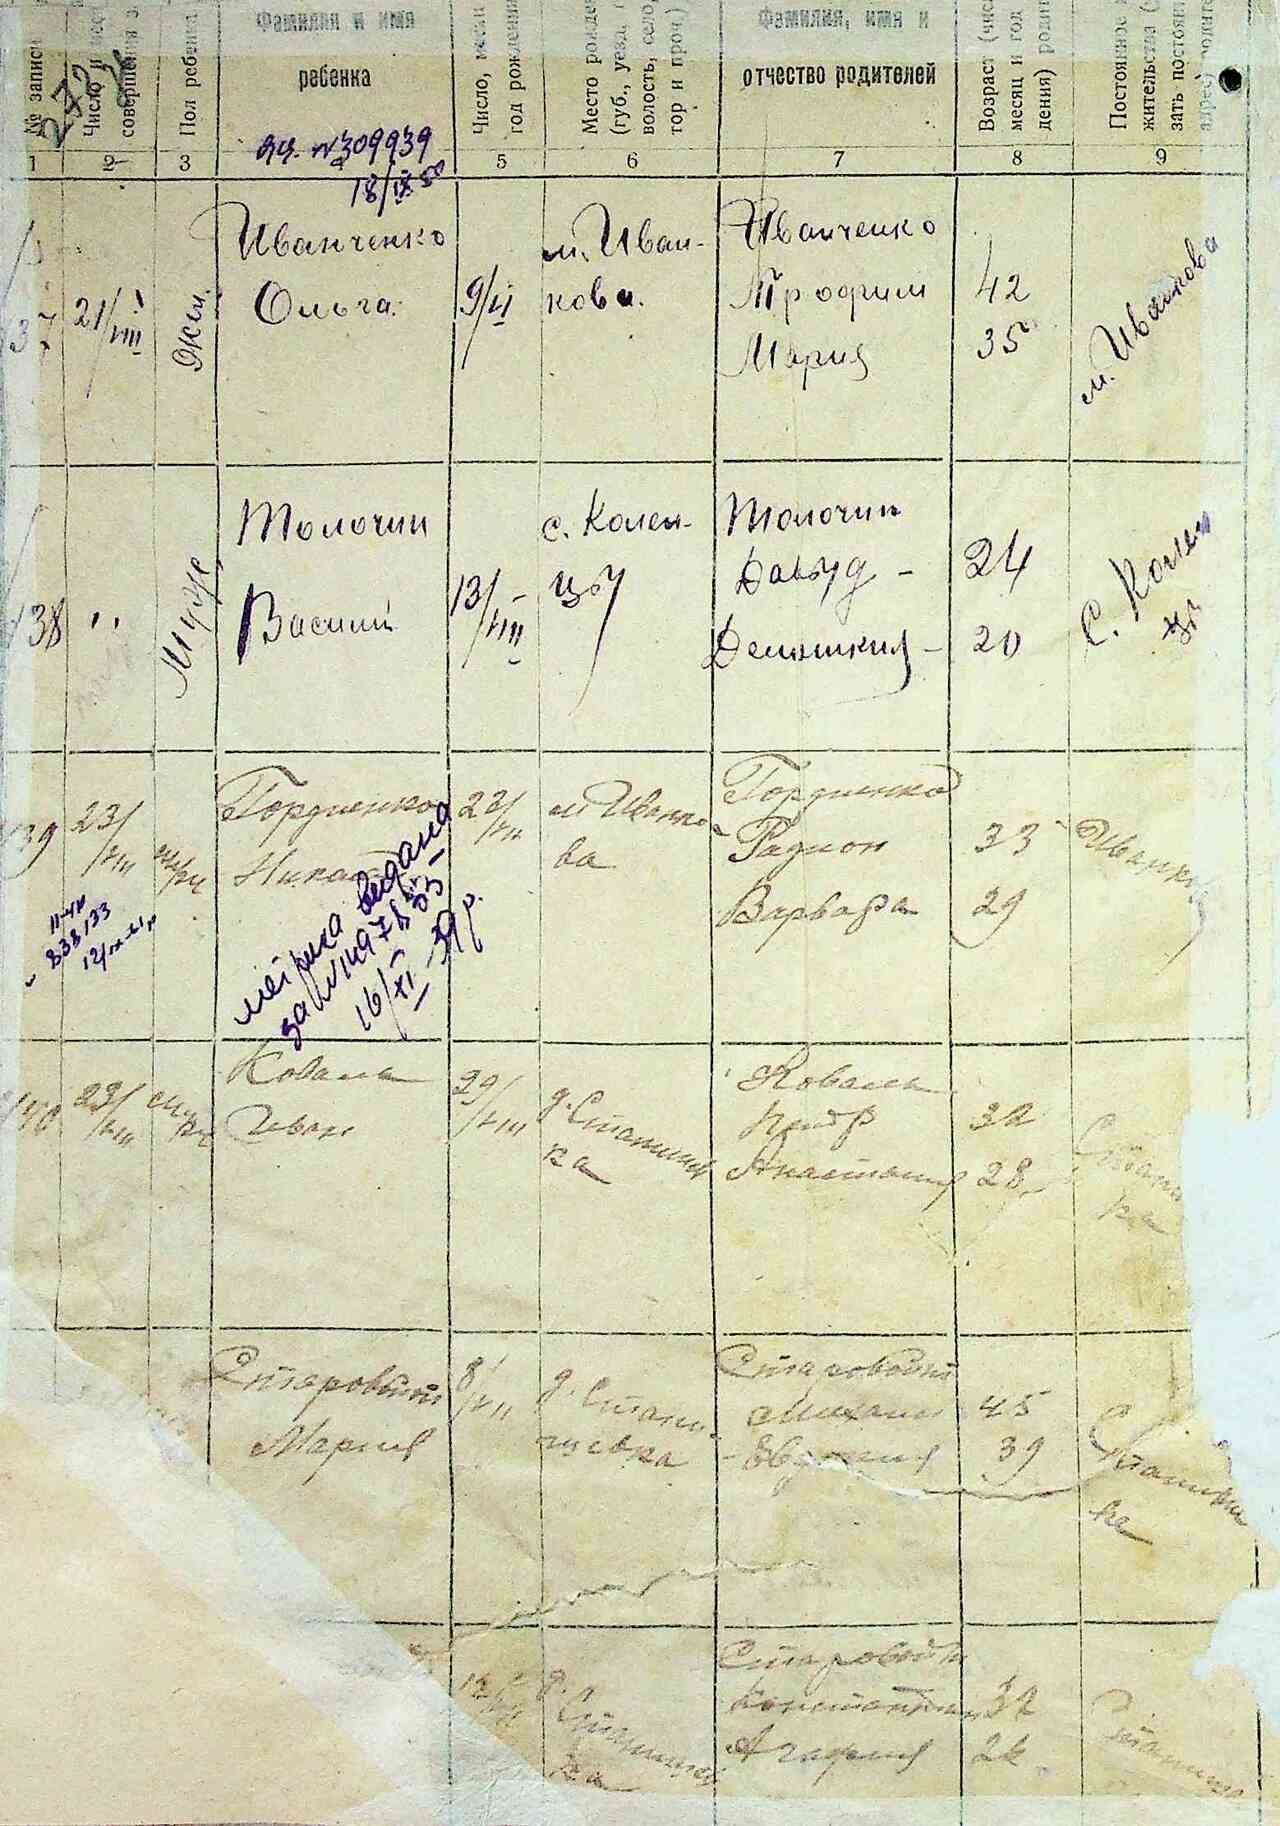 № записи
Число, месяц
совершения з
Пол ребенка
Фамилия и имя
ребенка
Число, месяц
год рождения
Место рожде
(губ., уезд,
волость, село,
тор и проч.)
Фамилия, имя и
отчество родителей
Возраст (число
месяц и год
дения) родит
Постоянное
жительства
зать постоян
адрес родите
272
1 2 3 5 6 7 8 9
№309939
18/IX 50
37
21/VIII
Жен.
Иванченко
Ольга.
м. Иван-
кова.
Иванченко
Трофим
Мария
42
35
м. Иванкова
138
"
Муж.
Толочин
Василий
13/VIII
с. Колен-
цы
Толочин
Давыд -
Демяшкия -
24
20
С. Колен
цы
139
23/VIII
муж
Гордиенко
22/VII
м Иванко
ва
Гордиенко
Радион
Варвара
33
29
Иванков
838133
метрика видана
16/XI 39 р.
140
23/VIII
муж
Коваль
Иван
29/VIII
д. Станиш
ка
Коваль
Петр
Анастасия
32
28
Стани
ка
Старовойт
Мария
8/VII
д. Стани-
шевка
Старовойт
Михаил
Евдокия
45
39
Станишев
ка
д.
Станишев
ка
Старовойт
Константин
Агафия
32
Станишев